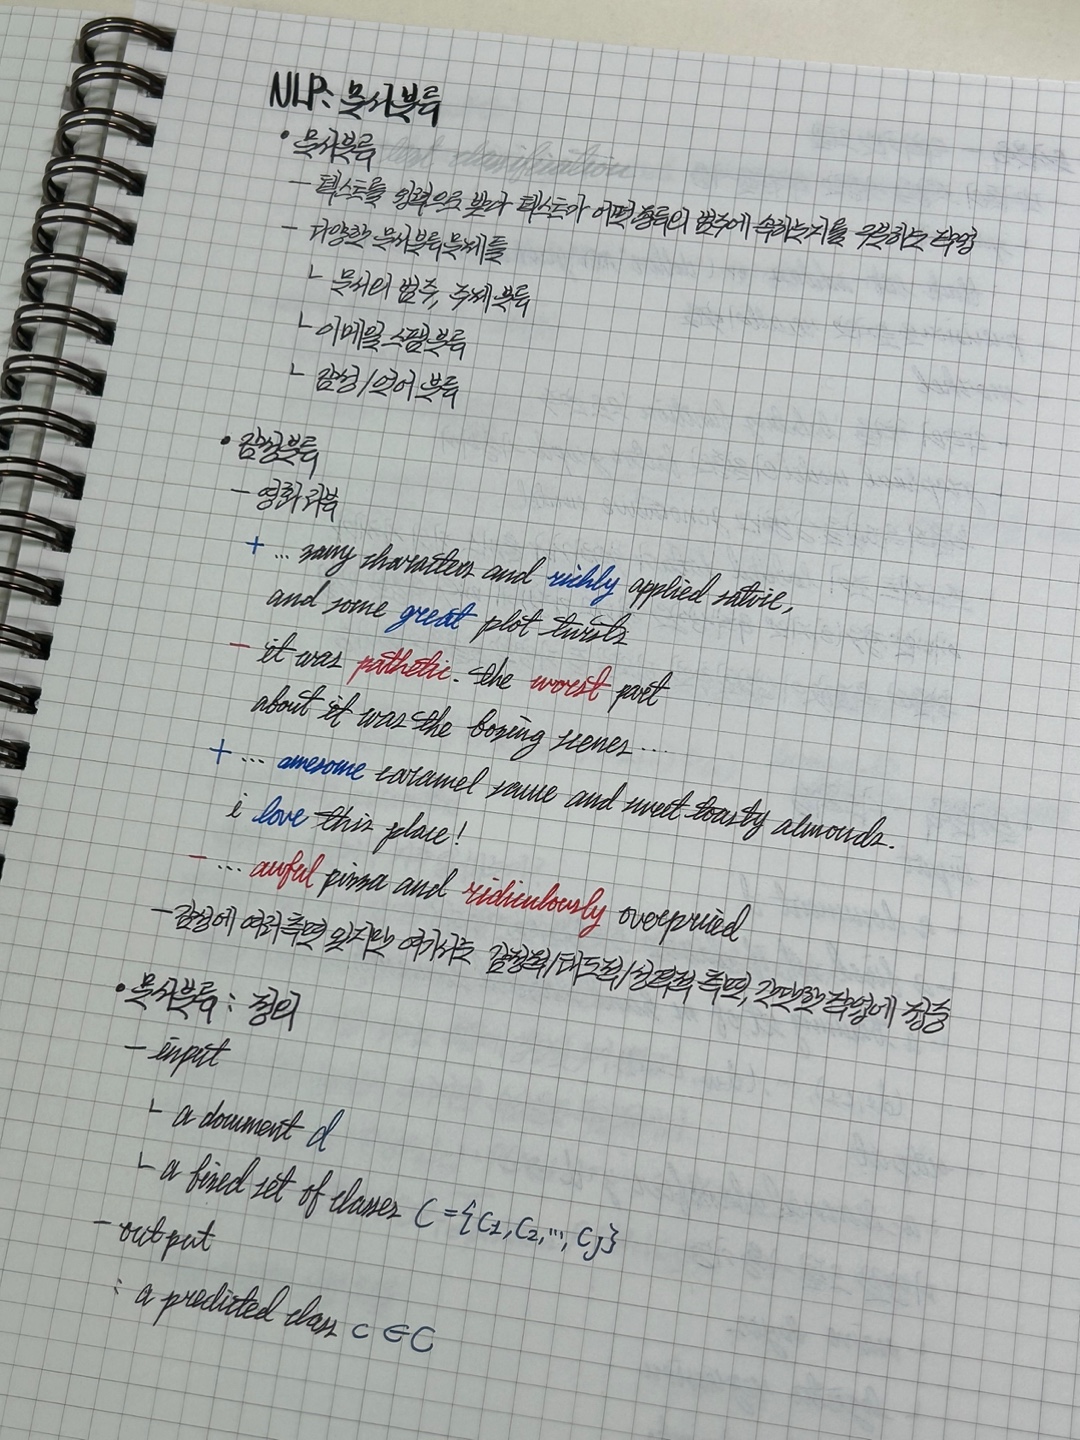 NLP: 문서분류
• 문서분류 text classification
- 텍스트를 입력으로 받아 텍스트가 어떤 종류의 범주에 속하는지를 구분하는 작업
- 다양한 문서분류 문제들
ㄴ 문서의 범주, 주제 분류
ㄴ 이메일 스팸 분류
ㄴ 감성/언어 분류
• 감성분류
- 영화 리뷰
+ ... zany characters and richly applied satire,
and some great plot twists
- it was pathetic. the worst part
about it was the boxing scenes ...
+ ... awesome caramel sauce and sweet toasty almonds.
i love this place!
- ... awful pizza and ridiculously overpriced
- 감성에 여러 측면 있지만 여기서는 감정적/태도적/성격적 측면, 간단한 작업에 집중
• 문서분류 : 정의
- input
ㄴ a document d
ㄴ a fixed set of classes C = {C1, C2, ..., CJ}
- output
: a predicted class c ∈ C